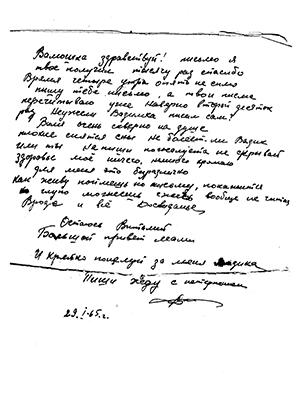 Валюшка здравствуй! письмо я
твоё получил тысячу раз спасибо
Время четыре утра опять не сплю
пишу тебе письмо, а твои письма
перечитываю уже наверно второй десяток
раз Неужели Вадимка писал сам?
Валя очень скверно на душе
плохие снятся сны не болеет ли Вадик
или ты Напиши пожалуйста не скрывай
Здоровье моё ничего, немного хромаю
но для меня это безразлично
Как живу поймёшь по письму, покажется
глупо можешь вообще не читать
Вроде и всё Досвиданье
Остаюсь Виталий
Большой привет маме
И крепко поцелуй за меня Вадика
Пиши жду с нетерпением
29.I-65 г.